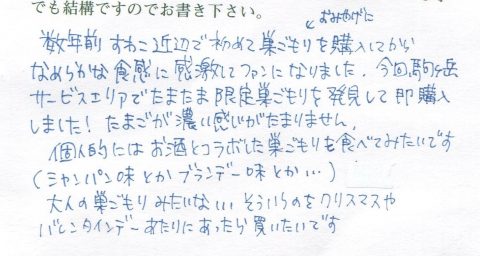 でも結構ですのでお書き下さい。
おみやげに
数年前 すわこ近辺で初めて巣ごもりを購入してから
なめらかな食感に感激してファンになりました。今回駒ヶ岳
サービスエリアでたまたま限定巣ごもりを発見して即購入
しました！たまごが濃い感じがたまりません。
個人的にはお酒とコラボした巣ごもりを食べてみたいです
(シャンパン味とかブランデー味とか…)
大人の巣ごもりみたいな… そういうのをクリスマスや
バレンタインデーあたりにあったら買いたいです